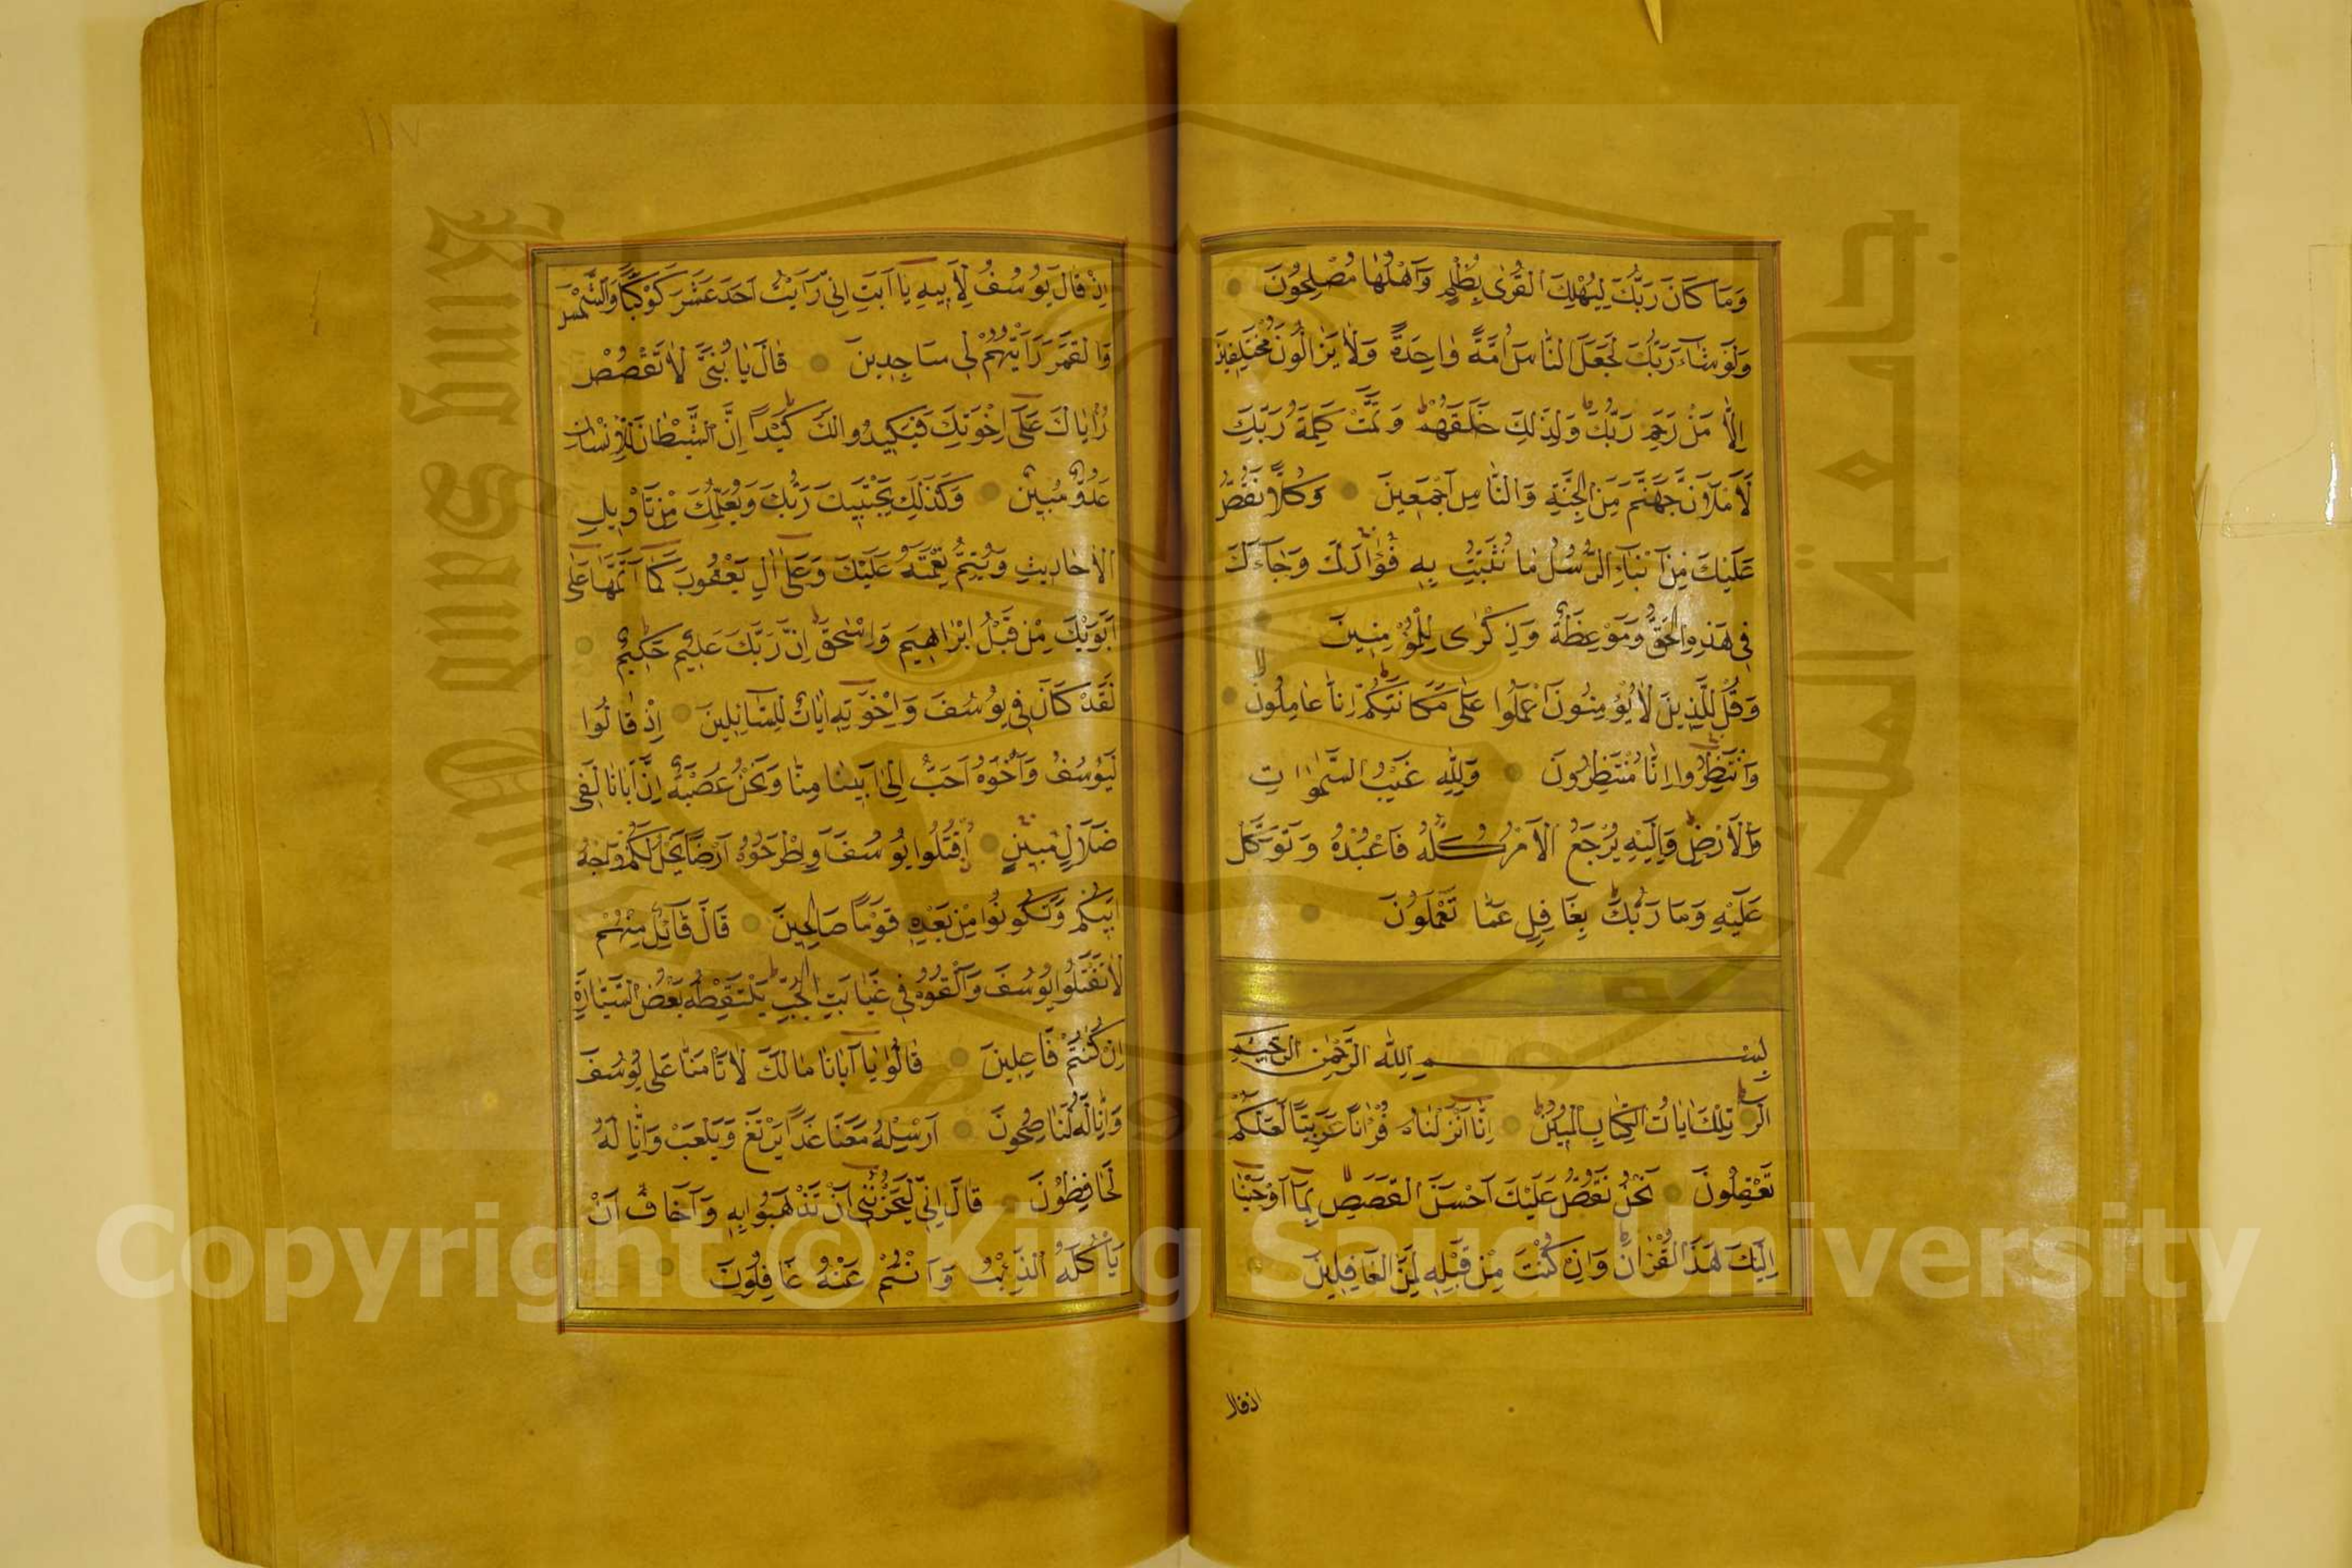 وَمَا كَانَ رَبُّكَ لِيُهْلِكَ الْقُرٰى بِظُلْمٍ وَاَهْلُهَا مُصْلِحُونَ
وَلَوْ شَاءَ رَبُّكَ لَجَعَلَ النَّاسَ اُمَّةً وَاحِدَةً وَلَا يَزَالُونَ مُخْتَلِفِينَ
اِلَّا مَنْ رَحِمَ رَبُّكَ وَلِذَلِكَ خَلَقَهُمْ وَتَمَّتْ كَلِمَةُ رَبِّكَ
لَاَمْلَاَنَّ جَهَنَّمَ مِنَ الْجِنَّةِ وَالنَّاسِ اَجْمَعِينَ وَكُلًّا نَقُصُّ
عَلَيْكَ مِنْ اَنْبَاءِ الرُّسُلِ مَا نُثَبِّتُ بِهِ فُؤَادَكَ وَجَاءَكَ
فِي هَذِهِ الْحَقُّ وَمَوْعِظَةٌ وَذِكْرٰى لِلْمُؤْمِنِينَ
وَقُلْ لِلَّذِينَ لَا يُؤْمِنُونَ اعْمَلُوا عَلٰى مَكَانَتِكُمْ اِنَّا عَامِلُونَ
وَانْتَظِرُوا اِنَّا مُنْتَظِرُونَ وَلِلّٰهِ غَيْبُ السَّمٰوَاتِ
وَالْاَرْضِ وَاِلَيْهِ يُرْجَعُ الْاَمْرُ كُلُّهُ فَاعْبُدْهُ وَتَوَكَّلْ
عَلَيْهِ وَمَا رَبُّكَ بِغَافِلٍ عَمَّا تَعْمَلُونَ
بِسْمِ اللّٰهِ الرَّحْمٰنِ الرَّحِيمِ
الٓرٰ تِلْكَ اٰيَاتُ الْكِتَابِ الْمُبِينِ اِنَّا اَنْزَلْنَاهُ قُرْاٰنًا عَرَبِيًّا لَعَلَّكُمْ
تَعْقِلُونَ نَحْنُ نَقُصُّ عَلَيْكَ اَحْسَنَ الْقَصَصِ بِمَا اَوْحَيْنَا
اِلَيْكَ هَذَا الْقُرْاٰنَ وَاِنْ كُنْتَ مِنْ قَبْلِهِ لَمِنَ الْغَافِلِينَ
اذ قال
١١٧
اِذْ قَالَ يُوسُفُ لِاَبِيهِ يَا اَبَتِ اِنِّي رَاَيْتُ اَحَدَ عَشَرَ كَوْكَبًا وَالشَّمْسَ
وَالْقَمَرَ رَاَيْتُهُمْ لِي سَاجِدِينَ قَالَ يَا بُنَيَّ لَا تَقْصُصْ
رُؤْيَاكَ عَلٰى اِخْوَتِكَ فَيَكِيدُوا لَكَ كَيْدًا اِنَّ الشَّيْطَانَ لِلْاِنْسَانِ
عَدُوٌّ مُبِينٌ وَكَذَلِكَ يَجْتَبِيكَ رَبُّكَ وَيُعَلِّمُكَ مِنْ تَاْوِيلِ
الْاَحَادِيثِ وَيُتِمُّ نِعْمَتَهُ عَلَيْكَ وَعَلٰى اٰلِ يَعْقُوبَ كَمَا اَتَمَّهَا عَلٰى
اَبَوَيْكَ مِنْ قَبْلُ اِبْرَاهِيمَ وَاِسْحٰقَ اِنَّ رَبَّكَ عَلِيمٌ حَكِيمٌ
لَقَدْ كَانَ فِي يُوسُفَ وَاِخْوَتِهِ اٰيَاتٌ لِلسَّائِلِينَ اِذْ قَالُوا
لَيُوسُفُ وَاَخُوهُ اَحَبُّ اِلٰى اَبِينَا مِنَّا وَنَحْنُ عُصْبَةٌ اِنَّ اَبَانَا لَفِي
ضَلَالٍ مُبِينٍ اُقْتُلُوا يُوسُفَ اَوِ اطْرَحُوهُ اَرْضًا يَخْلُ لَكُمْ وَجْهُ
اَبِيكُمْ وَتَكُونُوا مِنْ بَعْدِهِ قَوْمًا صَالِحِينَ قَالَ قَائِلٌ مِنْهُمْ
لَا تَقْتُلُوا يُوسُفَ وَاَلْقُوهُ فِي غَيَابَتِ الْجُبِّ يَلْتَقِطْهُ بَعْضُ السَّيَّارَةِ
اِنْ كُنْتُمْ فَاعِلِينَ قَالُوا يَا اَبَانَا مَا لَكَ لَا تَاْمَنَّا عَلٰى يُوسُفَ
وَاِنَّا لَهُ لَنَاصِحُونَ اَرْسِلْهُ مَعَنَا غَدًا يَرْتَعْ وَيَلْعَبْ وَاِنَّا لَهُ
لَحَافِظُونَ قَالَ اِنِّي لَيَحْزُنُنِي اَنْ تَذْهَبُوا بِهِ وَاَخَافُ اَنْ
يَاْكُلَهُ الذِّئْبُ وَاَنْتُمْ عَنْهُ غَافِلُونَ
Copyright © King Saud University